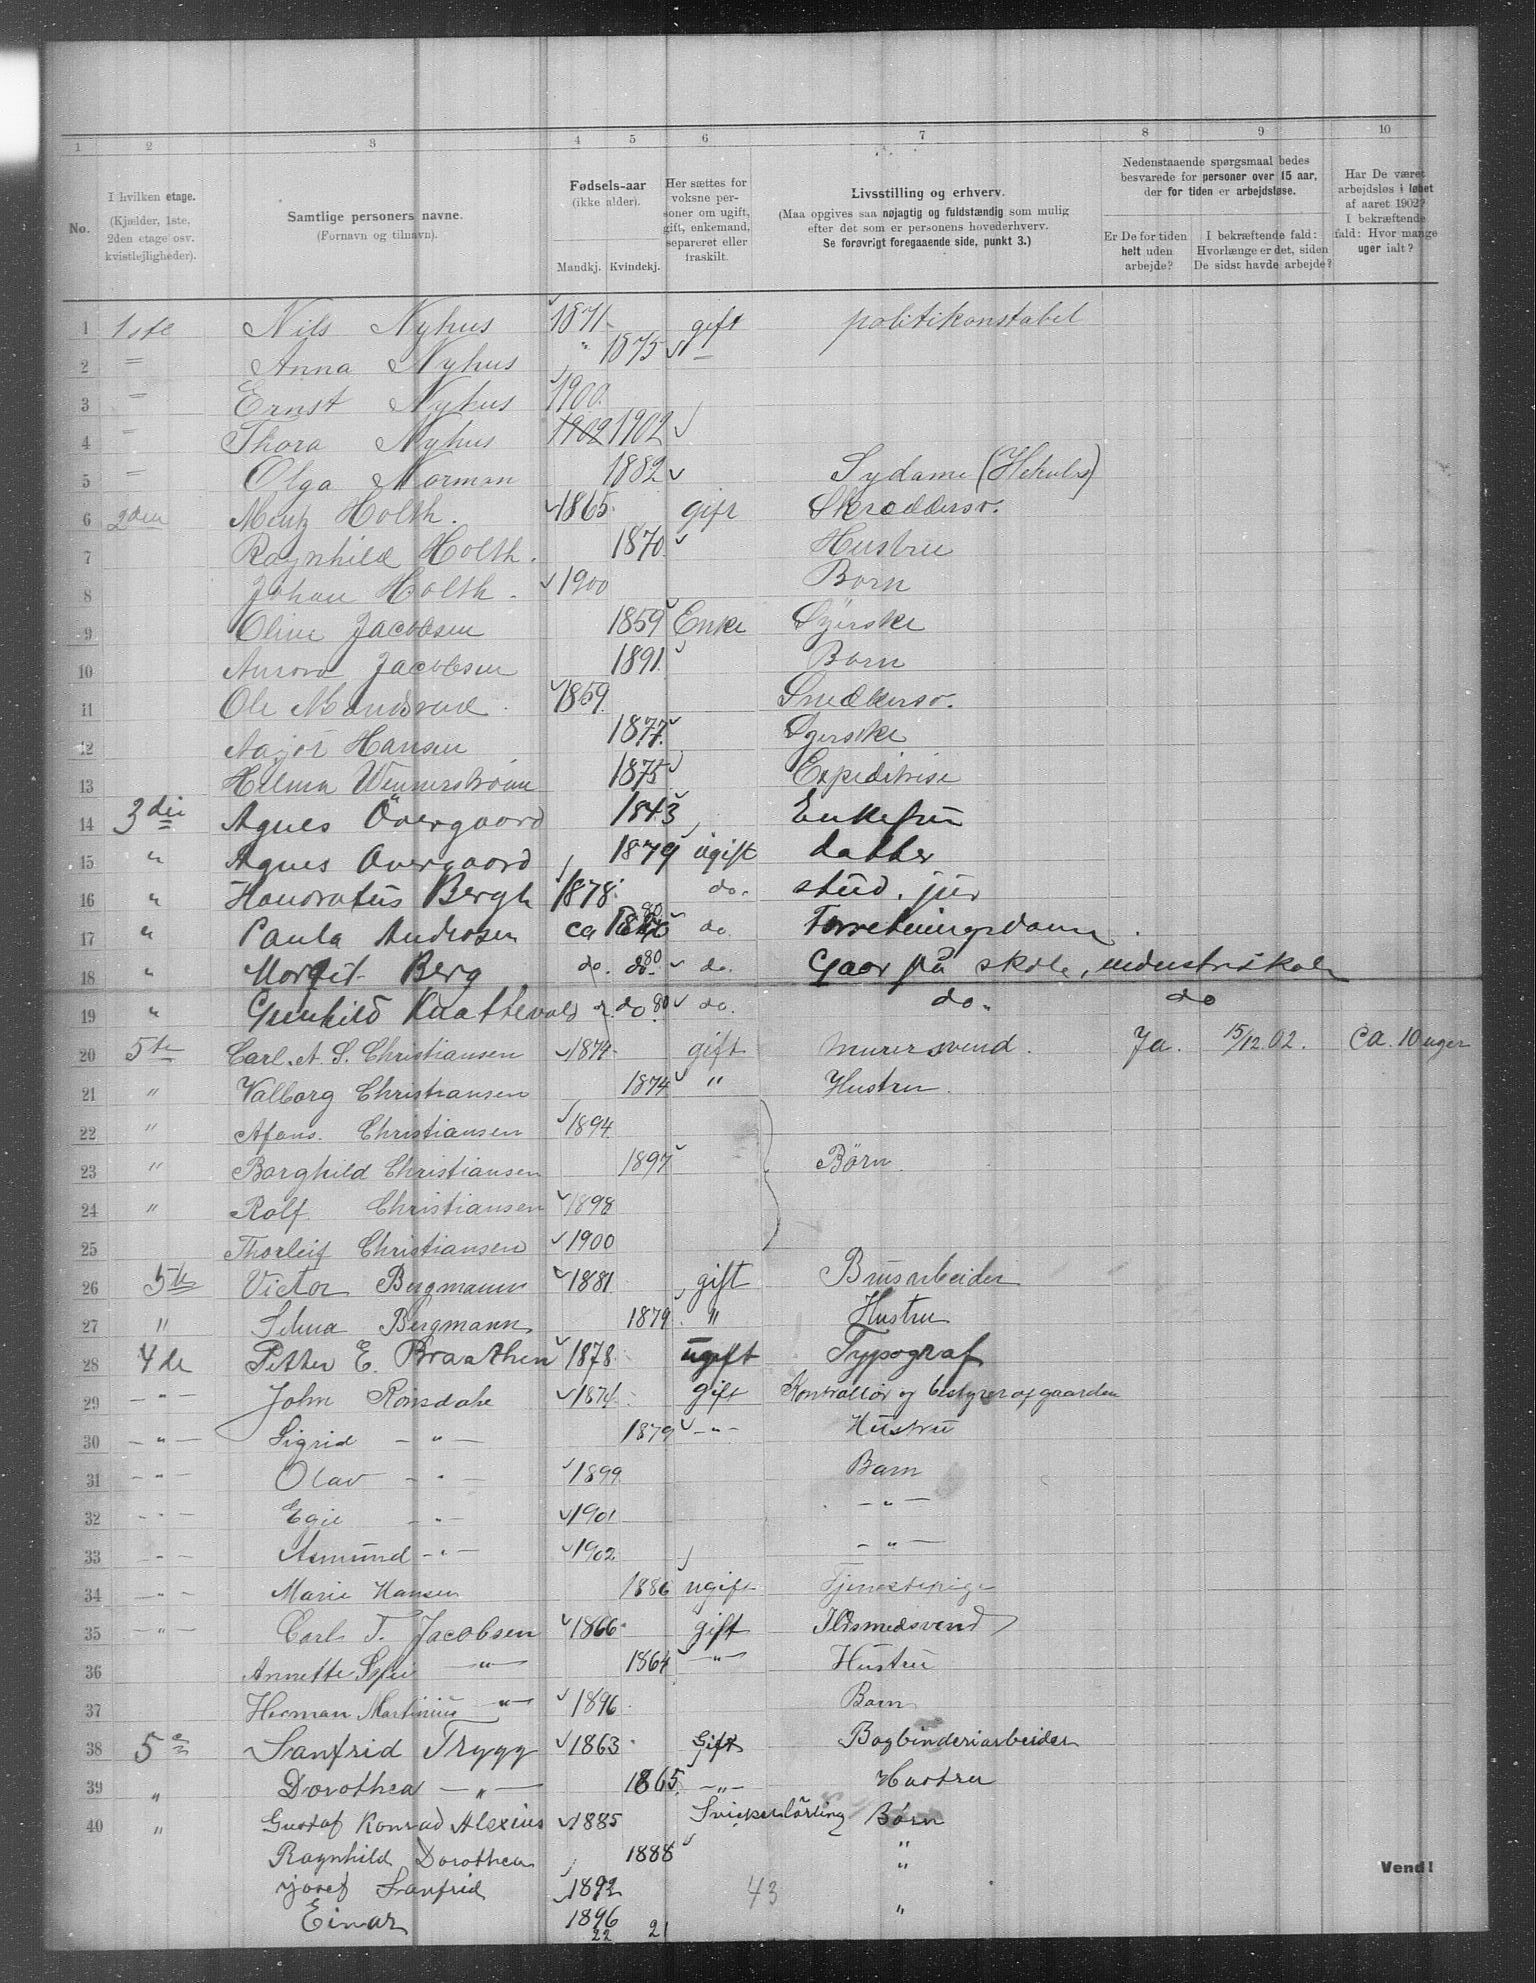 1 2 3 4 5 6 7 8 9 10
No.
I hvilken etage. (Kjælder, 1ste, 2den etage osv. kvistlejligheder).
Samtlige personers navne. (Fornavn og tilnavn).
Fødsels-aar (ikke alder). Mandkj. Kvindekj.
Her sættes for voksne personer om ugift, gift, enkemand, separeret eller fraskilt.
Livsstilling og erhverv. (Maa opgives saa nøjagtig og fuldstændig som mulig efter det som er personens hovederhverv. Se forøvrigt foregaaende side, punkt 3.)
Nedenstaaende spørgsmaal bedes besvarede for personer over 15 aar, der for tiden er arbejdsløse.
Er De for tiden helt uden arbejde?
I bekræftende fald: Hvorlænge er det, siden De sidst havde arbejde?
Har De været arbejdsløs i løbet af aaret 1902? I bekræftende fald: Hvor mange uger ialt?
1 1ste Nils Nyhus 1871 gift politikonstabel
2 = Anna Nyhus " 1875 —
3 = Ernst Nyhus 1900
4 = Thora Nyhus 1902 1902
5 = Olga Norman 1882 Sydame
6 2den Mentz Holth. 1865 gift Skræddersv.
7 Ragnhild Holth. 1870 Hustru
8 Johan Holth. 1900 Barn
9 Oline Jacobsen 1859 Enke Syerske
10 Aurora Jacobsen 1891 Barn
11 Ole 1859 Snedkersv.
12 Hansen 1877 Syerske
13 Hilma Wennerstrøm 1875 Expeditrise
14 3die Agnes Övergaard 1843 Enkefru
15 " Agnes Övergaard 1879 ugift datter
16 " Honoratus Bergh 1878 do. stud. jur
17 " Paula Androsen ca 80 do. Forretningsdame.
18 " Margit Berg do. do. 80 do. Gaar på skole, industriskole
19 " Gunhild do 80 do. do. do
20 5te Carl. A. S. Christiansen 1874 gift murersvend. Ja. 15/12.02. Ca. 10 uger
21 " Valborg Christiansen 1874 " Hustru.
22 " Christiansen 1894
23 " Borghild Christiansen 1897 Børn
24 " Rolf Christiansen 1898
25 Thorleif Christiansen 1900
26 5te Victor Bergmann 1881 gift Brusarbeider
27 " Selma Bergmann 1879 " Hustru
28 4de Petter E. Braathen 1878 ugift Typograf
29 — " — John Ronsdahe 1874 gift Kontrollør og bestyrer af gaarden
30 — " — Sigrid — " — 1879 — " — Hustru
31 — " — Olav — " — 1899 Barn
32 — " — Egil — " — 1901 — " —
33 — " — Asmund — " — 1902 — " —
34 — " — Marie Hansen 1886 ugift Tjenestepige
35 — " — Carl T. Jacobsen 1866 gift Ildsmedsvend
36 Annette — " — 1864 — " — Hustru
37 Herman Martinius — " — 1896 Barn
38 5e Sanfrid Trygg 1863 Gift Bogbinderiarbeider
39 " Dorothea — " — 1865 — " — Hustru
40 " Gustaf Konrad Alexius 1885 Snickerlärling Børn
Ragnhild Dorothea 1888 "
Josef Sanfrid 1892 "
Einar 1896 "
22 21 43
Vend!